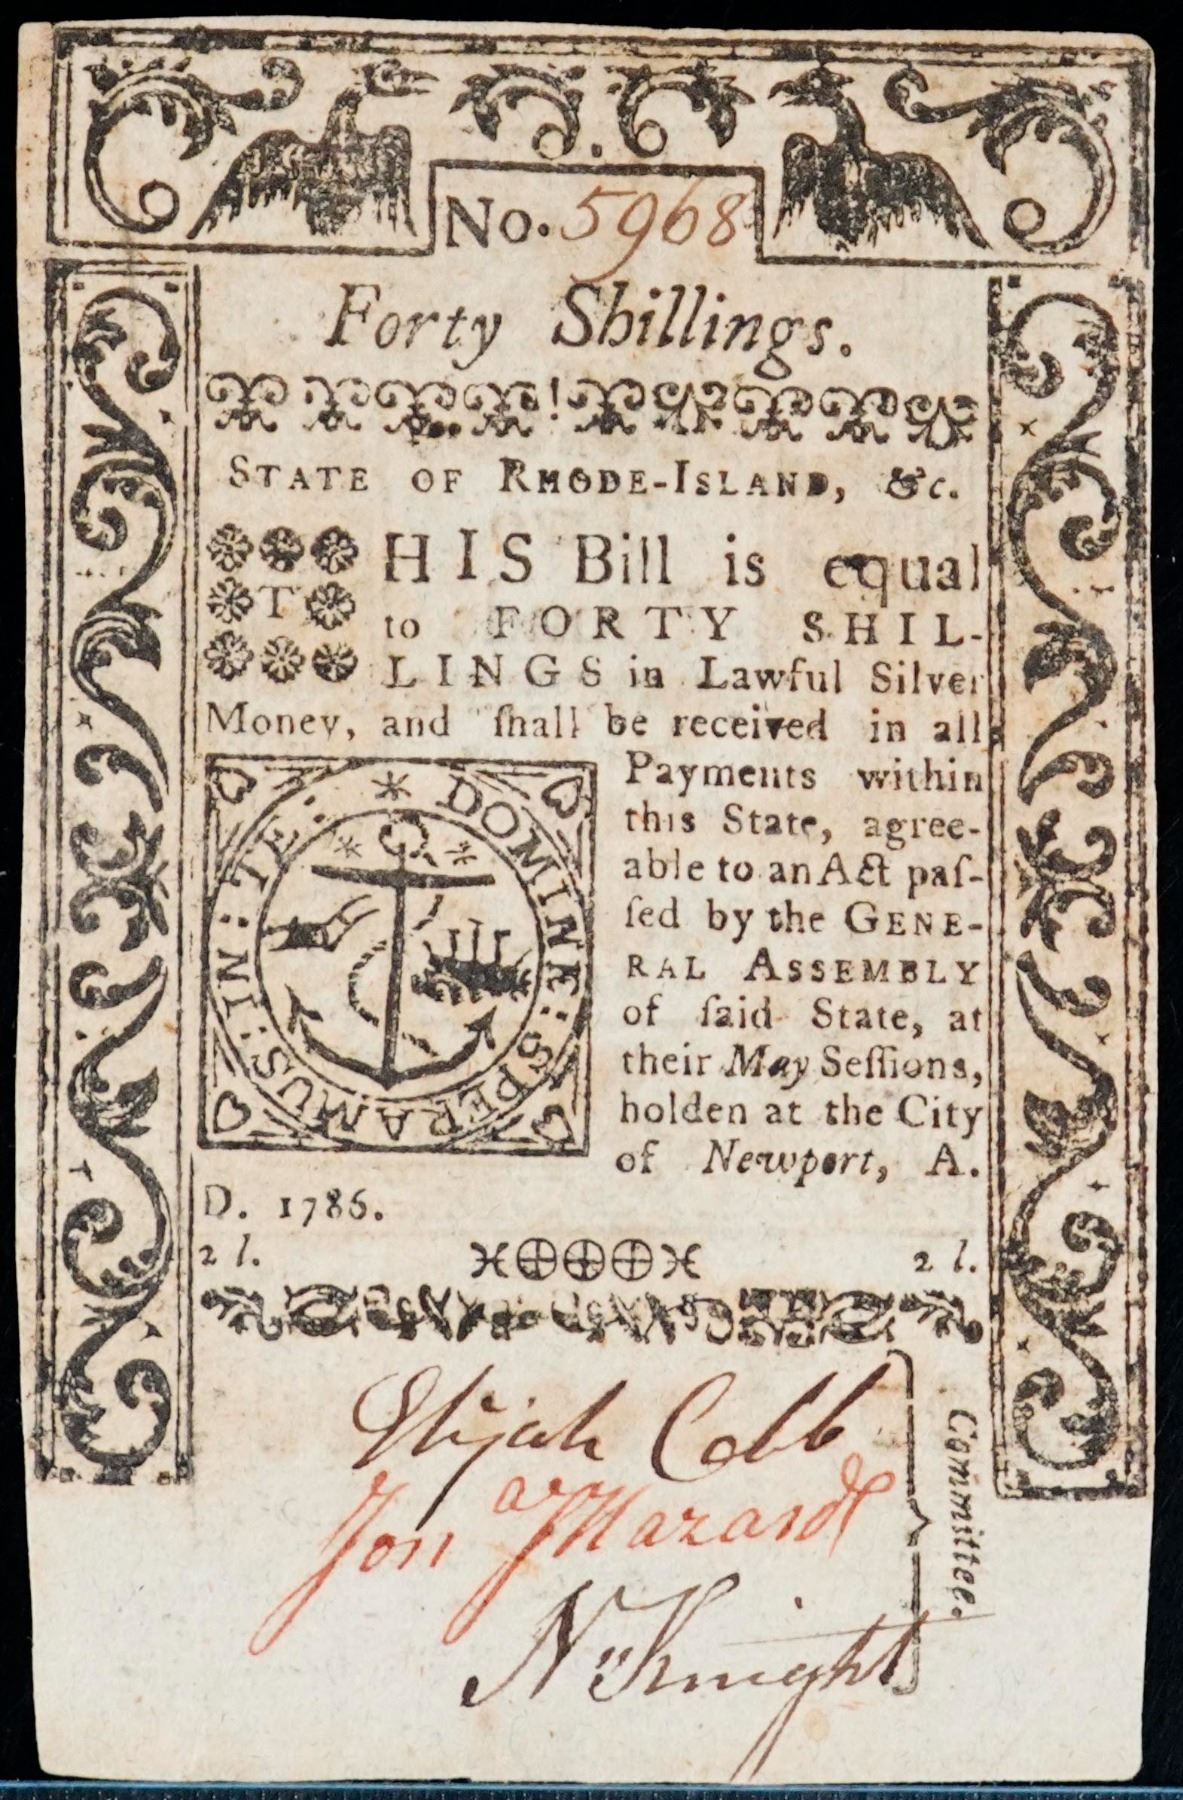 No. 5968
Forty Shillings.
STATE OF RHODE-ISLAND, &c.
THIS Bill is equal
to FORTY SHIL-
LINGS in Lawful Silver
Money, and ſhall be received in all
Payments within
this State, agree-
able to an Act paſ-
ſed by the GENE-
RAL ASSEMBLY
of ſaid State, at
their May Seſſions,
holden at the City
of Newport, A.
D. 1786.
IN : TE : DOMINE : SPERAMUS :
2 l. 2 l.
Elijah Cobb
Jona J Hazard
N Knight
Committee.